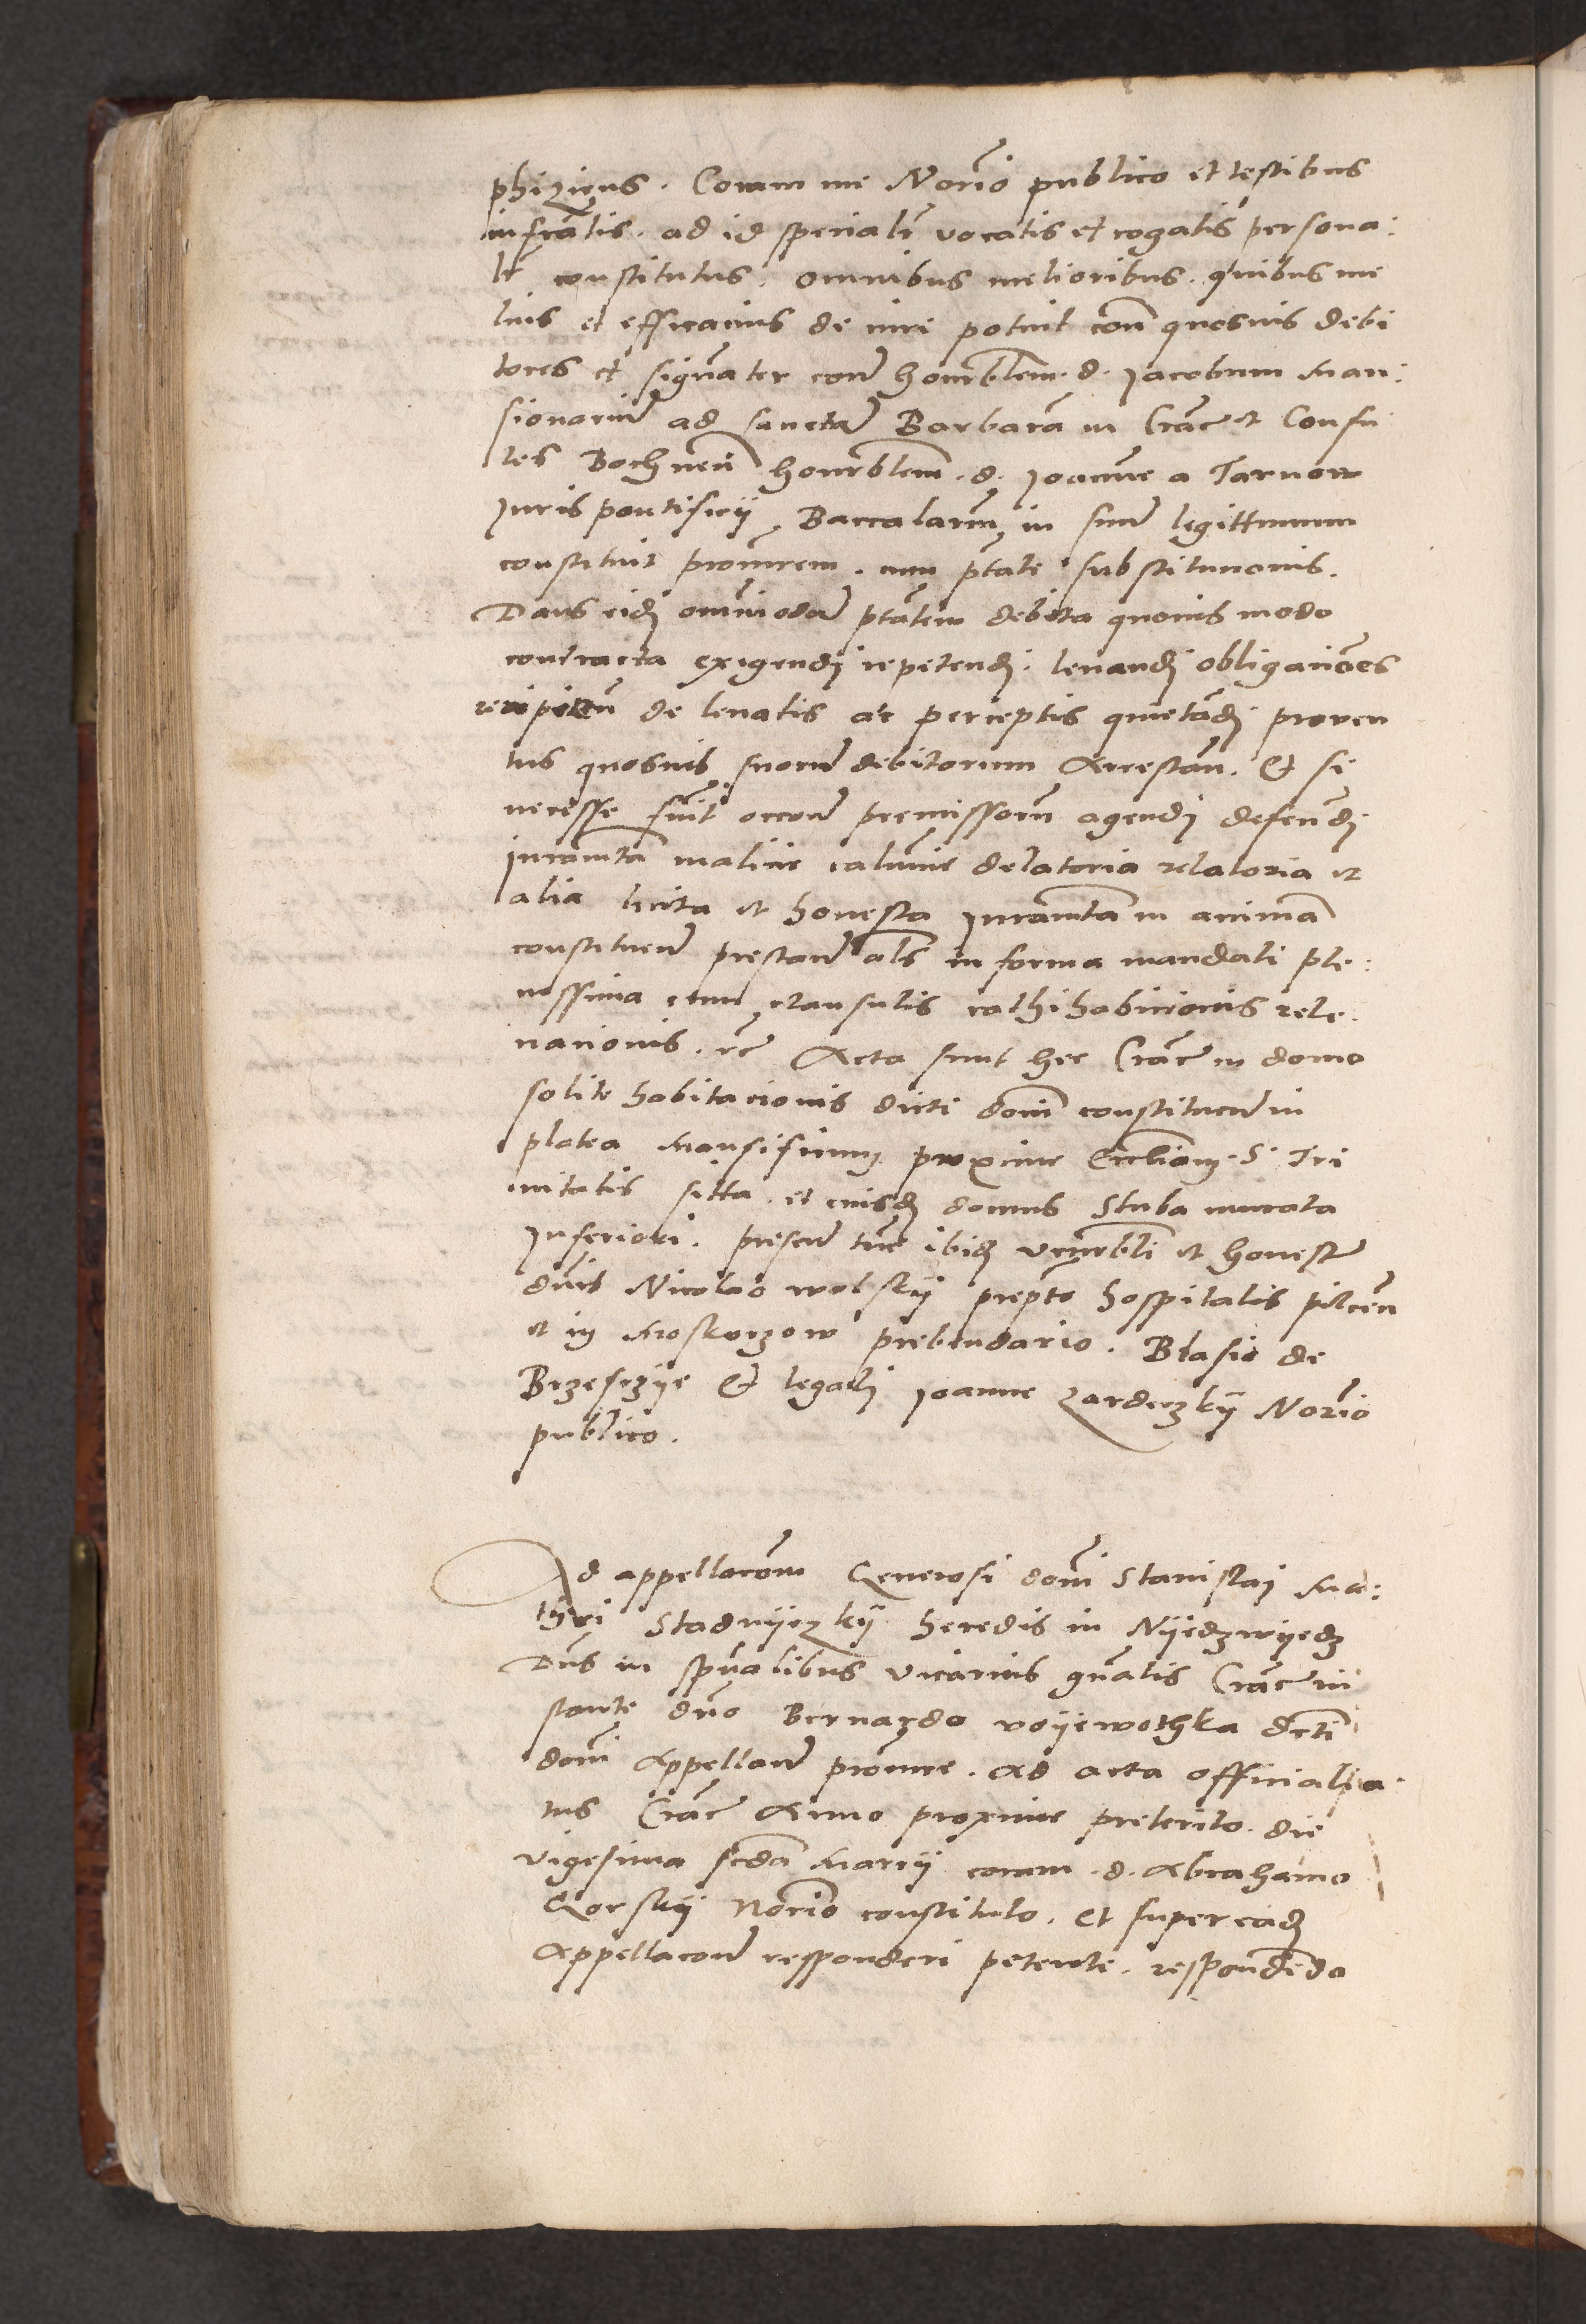 phizicus. Coram me No͞rio publico et testibus
infra͞tis. ad id speciali͞r vocatis et rogatis persona:
li͞r constitutus. omnibus melioribus. quibus me
lius et efficacius de iure potuit con͞ quosuis debi
tores et signa͞ter con͞ hono͞rblem. d. Jacobum Man:
sionariu͞ ad sancta͞ Barbara͞ in Crac͞ et Consu
les Bochnen͞ hono͞rblem. d. Joanne͞ a Tarnow
Juris pontificij Baccalareu͞ in suu͞ legittimum
constituit procu͞rem. cum p͞tate substitucionis.
Dans eid͞ omnimoda͞ p͞tatem debita quouis modo
contracta exigendj repetend͞j. leuand͞j obligacio͞es
recipien͞ de leuatis ac perceptis quieta͞dj. proven
tus quosuis suoru͞ debitorum Arrestan͞. Et si
necesse fu͞it occo͞ne premissoru͞ agendj defen͞dj
Jurame͞ta malicie calu͞nie delatoria relatoria et
alia licita et honesta Jurame͞ta in anima͞
constituen͞ prestan͞ al͞s in forma mandati ple:
nissima cum clausulis rathihabicionis rele:
uacionis. etc͞ Acta sunt hec Crac͞ in domo
solite habitacionis dicti do͞ni constituen͞ in
platea proxime Eccl͞iam. S. Tri
nitatis sitta. et eiusd͞ domus Stuba murata
Inferiori. presen͞ tunc ibid͞ vene͞rbli et honest͞
do͞nis Nicolao Wolskij prep͞to hospitalis pilcen͞
et in Moskorzow prebendario. Blasio de
Brzesczije Et legali Joanne Zardeczkij No͞rio
publico.

Ad appellaco͞em Generosi do͞ni Stanislaj Ma:
thei Stadnijczkij heredis in Nijedzwijedz
D͞ns in sp͞ualibus vicarius g͞nalis Crac͞ in
stante d͞no Bernardo voijewothka dicti
do͞ni Appellan͞ procu͞re. Ad acta officiala
tus Crac͞ Anno proxime preterito. die
vigesima s͞cda Marcij coram. d. Abrahamo
Gorskij No͞rio constituto. et super ead͞
Appellaco͞ne responderi petente. respondendo